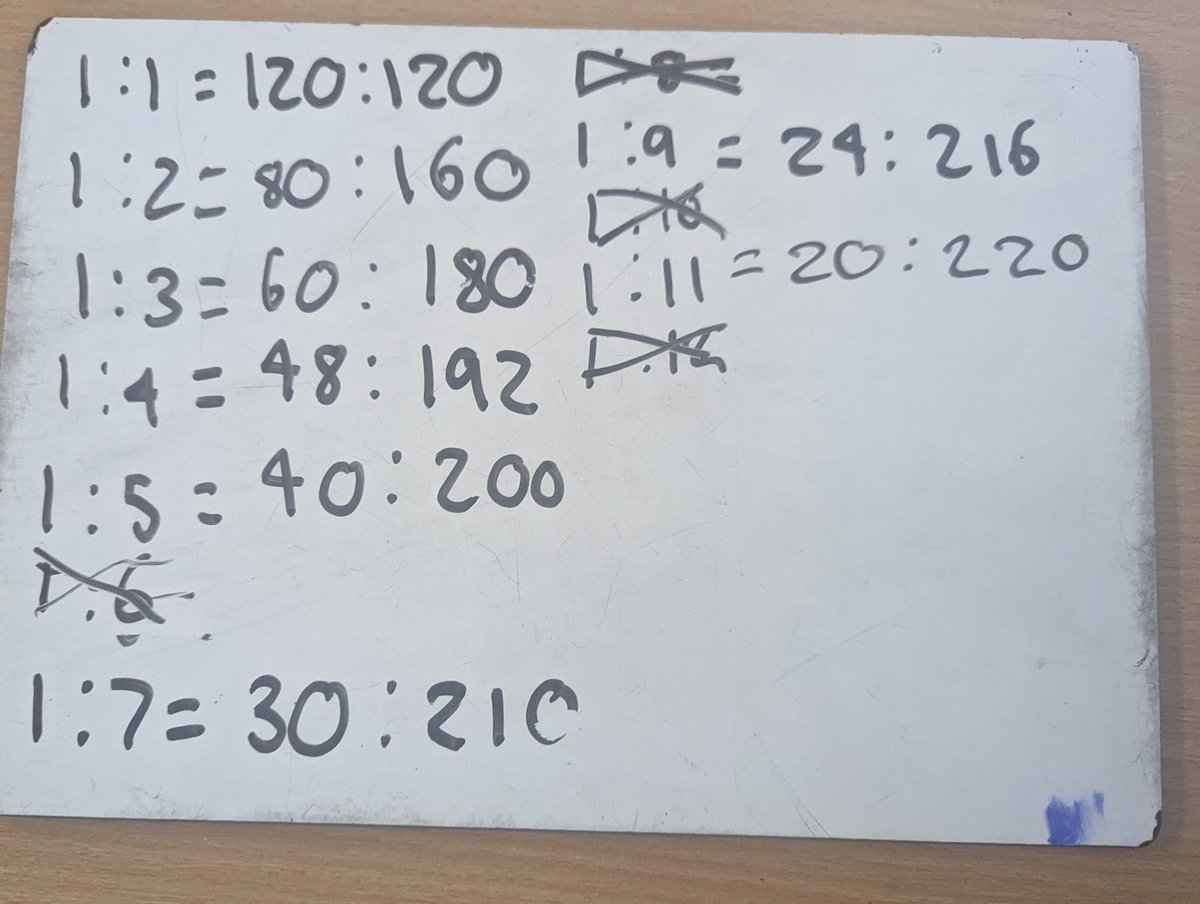 1:1 = 120:120
1:2 = 80:160
1:3 = 60:180
1:4 = 48:192
1:5 = 40:200
1:6
1:7 = 30:210
1:8
1:9 = 24:216
1:10
1:11 = 20:220
1:12